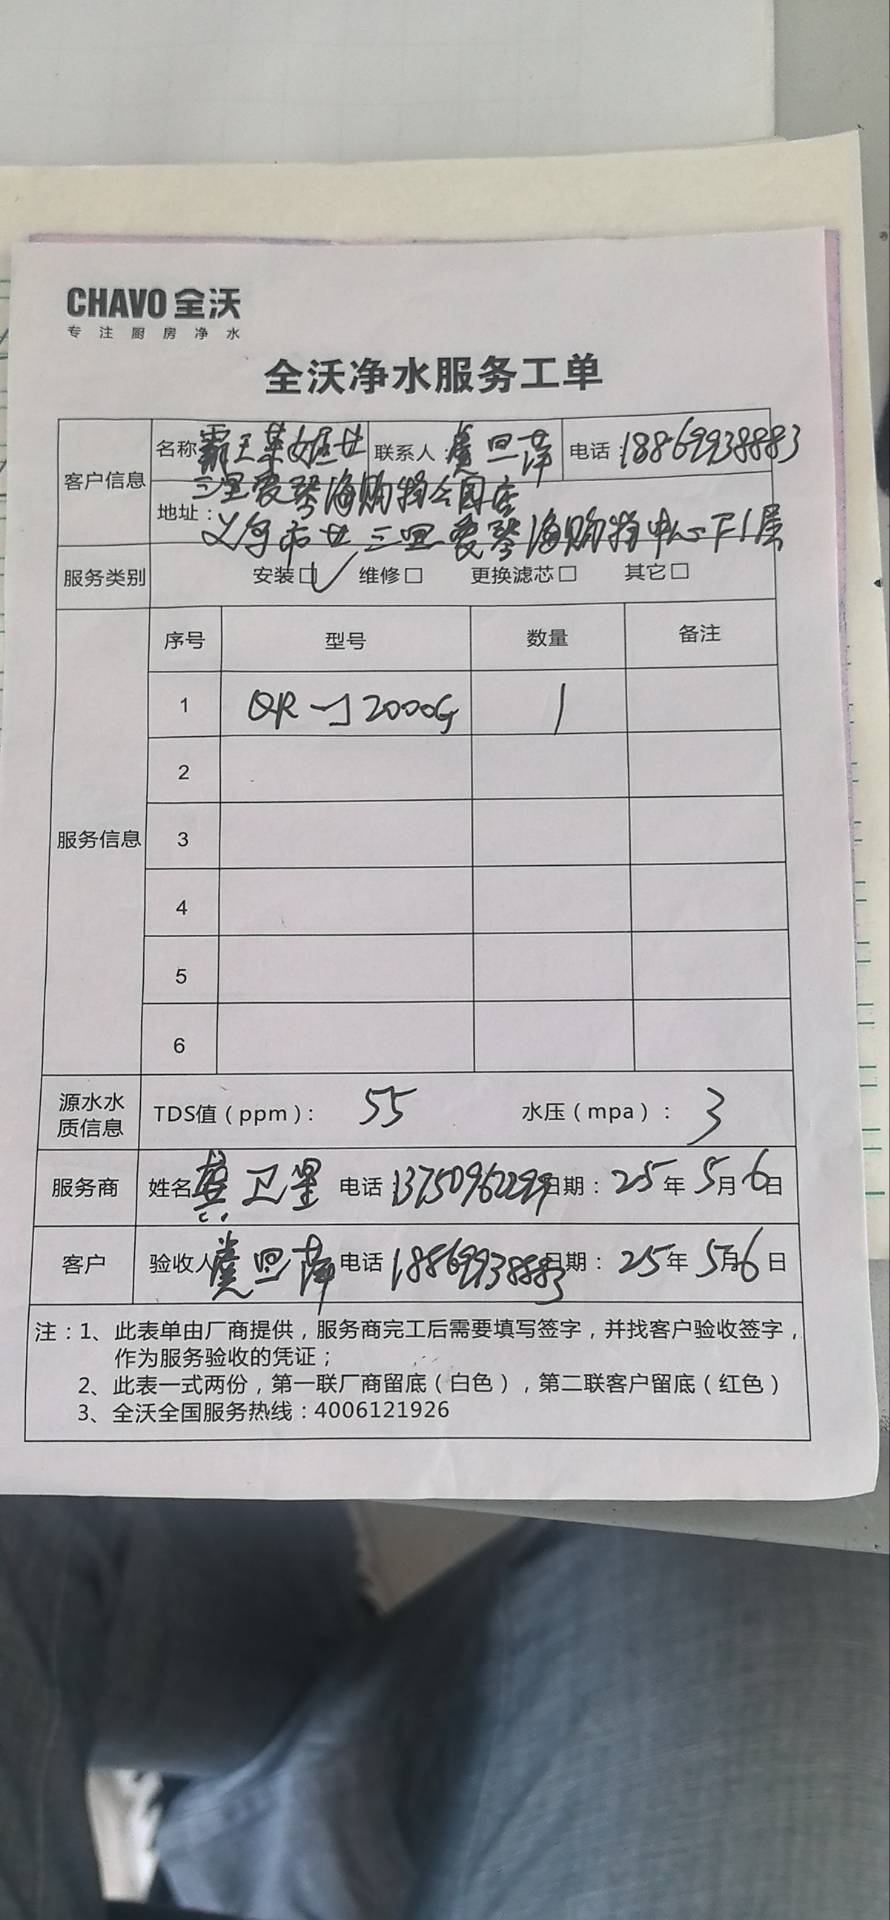 CHAVO 全沃
专注厨房净水
全沃净水服务工单
客户信息 名称 霸王茶姬廿三里爱琴海购物公园店 联系人: 虞旦萍 电话: 18869938883
地址: 义乌市廿三里爱琴海购物中心F1层
服务类别 安装☑ 维修□ 更换滤芯□ 其它□
服务信息 序号 型号 数量 备注
1 QR-J2000G 1
2
3
4
5
6
源水水质信息 TDS值(ppm): 55 水压(mpa): 3
服务商 姓名 龚卫星 电话 13750962299 日期: 25年5月6日
客户 验收人 虞旦萍 电话 18869938883 日期: 25年5月6日
注:1、此表单由厂商提供,服务商完工后需要填写签字,并找客户验收签字,
作为服务验收的凭证;
2、此表一式两份,第一联厂商留底(白色),第二联客户留底(红色)
3、全沃全国服务热线:4006121926